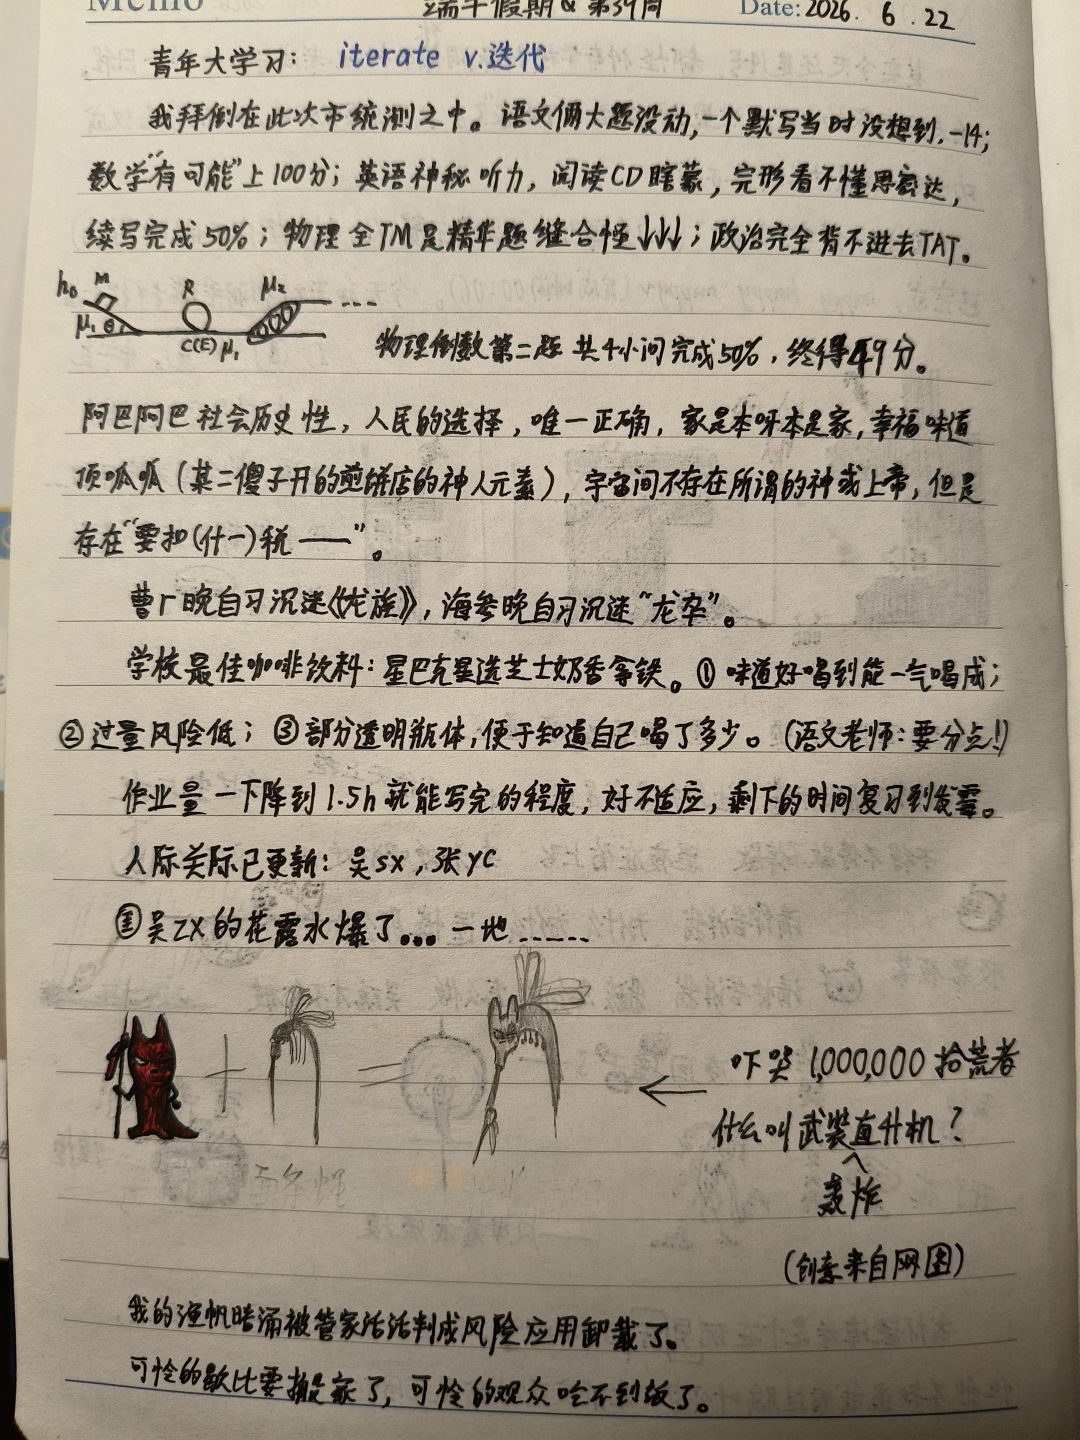 Memo 端午假期& 第39周 Date: 2026. 6 . 22
青年大学习: iterate v.迭代
我拜倒在此次市统测之中。语文俩大题没动,一个默写当时没想到,-14;
数学"有可能"上100分; 英语神秘听力, 阅读CD瞎蒙, 完形看不懂思密达,
续写完成50%; 物理全TM是精华题缝合怪↓↓↓; 政治完全背不进去TAT。
h₀ m R μ₂
μ₁ θ C(E) μ₁
物理倒数第二题 共4小问完成50%, 终得49分。
阿巴阿巴社会历史性, 人民的选择, 唯一正确, 家是本呀本是家, 幸福味道
顶呱呱(某二傻子开的煎饼店的神人元素), 宇宙间不存在所谓的神或上帝, 但是
存在"要扣(什一)税——"。
曹r晚自习沉迷《龙族》, 海参晚自习沉迷"龙卒"。
学校最佳咖啡饮料: 星巴克星选芝士奶香拿铁。① 味道好喝到能一气喝成;
② 过量风险低; ③ 部分透明瓶体, 便于知道自己喝了多少。(语文老师: 要分点!)
作业量一下降到1.5h就能写完的程度, 好不适应, 剩下的时间复习到发霉。
人际关际已更新: 吴sx, 张yc
吴zx的花露水爆了... 一地......
+ =
← 吓哭1,000,000拾荒者
什么叫武装直升机?
轰炸
(创意来自网图)
我的涯帆暗涌被管家活活判成风险应用卸载了。
可怜的歇比要搬家了, 可怜的观众吃不到饭了。